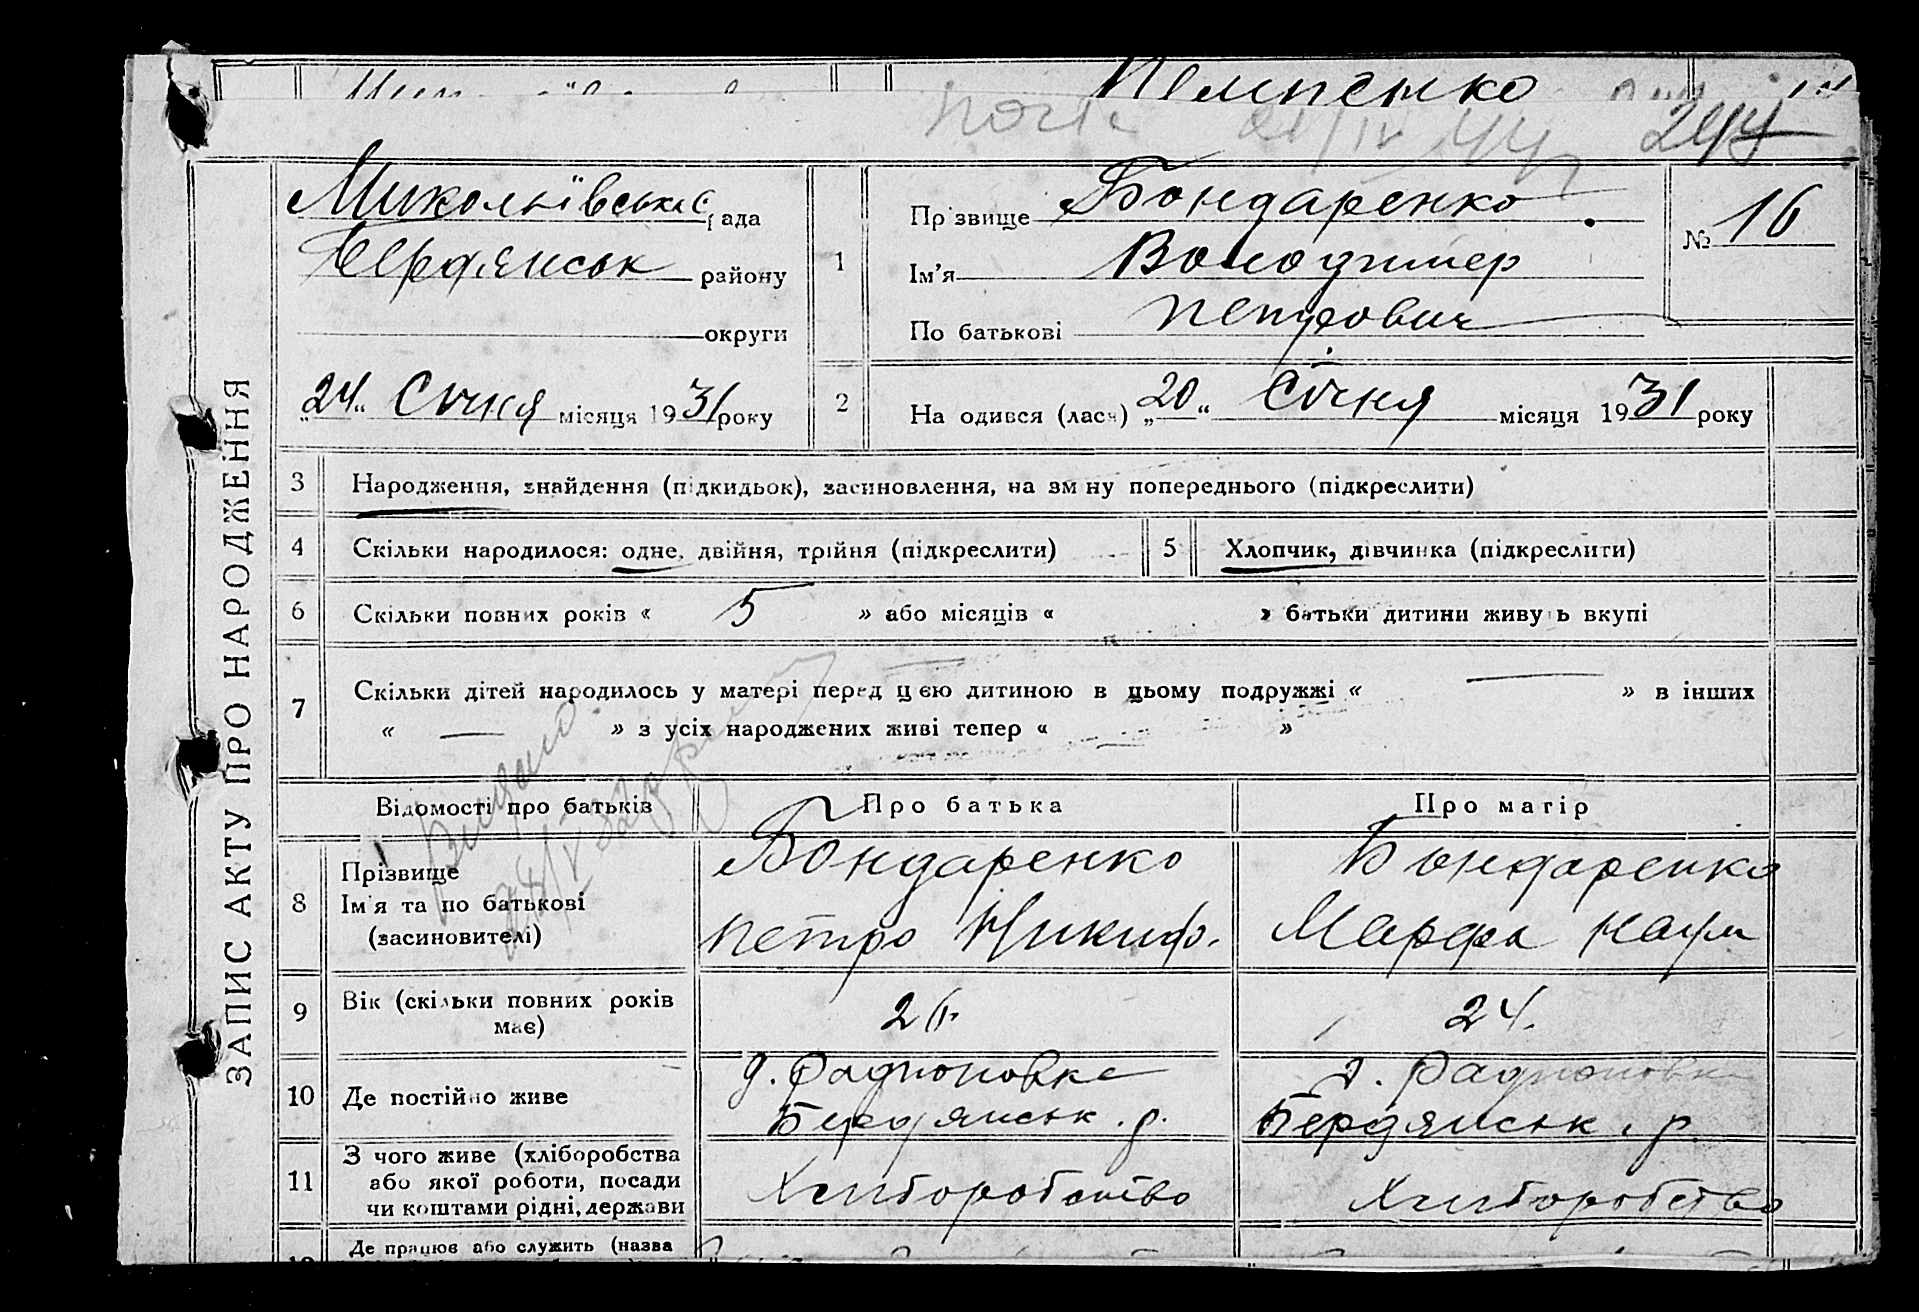 294
ЗАПИС АКТУ ПРО НАРОДЖЕННЯ
Миколаївська рада
Бердянськ району
округи
„24“ Січня місяця 1931 року
1
Прізвище Бондаренко
Ім'я Володимер
По батькові Петрович
№ 16
2
Народився (лася) „20“ Січня місяця 1931 року
3 Народження, знайдення (підкидьок), засиновлення, на зміну попереднього (підкреслити)
4 Скільки народилося: одне, двійня, трійня (підкреслити)
5 Хлопчик, дівчинка (підкреслити)
6 Скільки повних років « 5 » або місяців « » батьки дитини живуть вкупі
7 Скільки дітей народилось у матері перед цією дитиною в цьому подружжі « — » в інших
« — » з усіх народжених живі тепер « — »
Відомості про батьків Про батька Про матір
8 Прізвище
Ім'я та по батькові
(засиновителі)
Бондаренко
Петро Никиф.
Бондаренко
Марфа Наум
9 Вік (скільки повних років
має)
26.
24.
10 Де постійно живе
Бердянськ. р.
Бердянськ. р.
11 З чого живе (хліборобства
або якої роботи, посади
чи коштами рідні, держави
Хліборобство
Хліборобство
Де працює або служить (назва